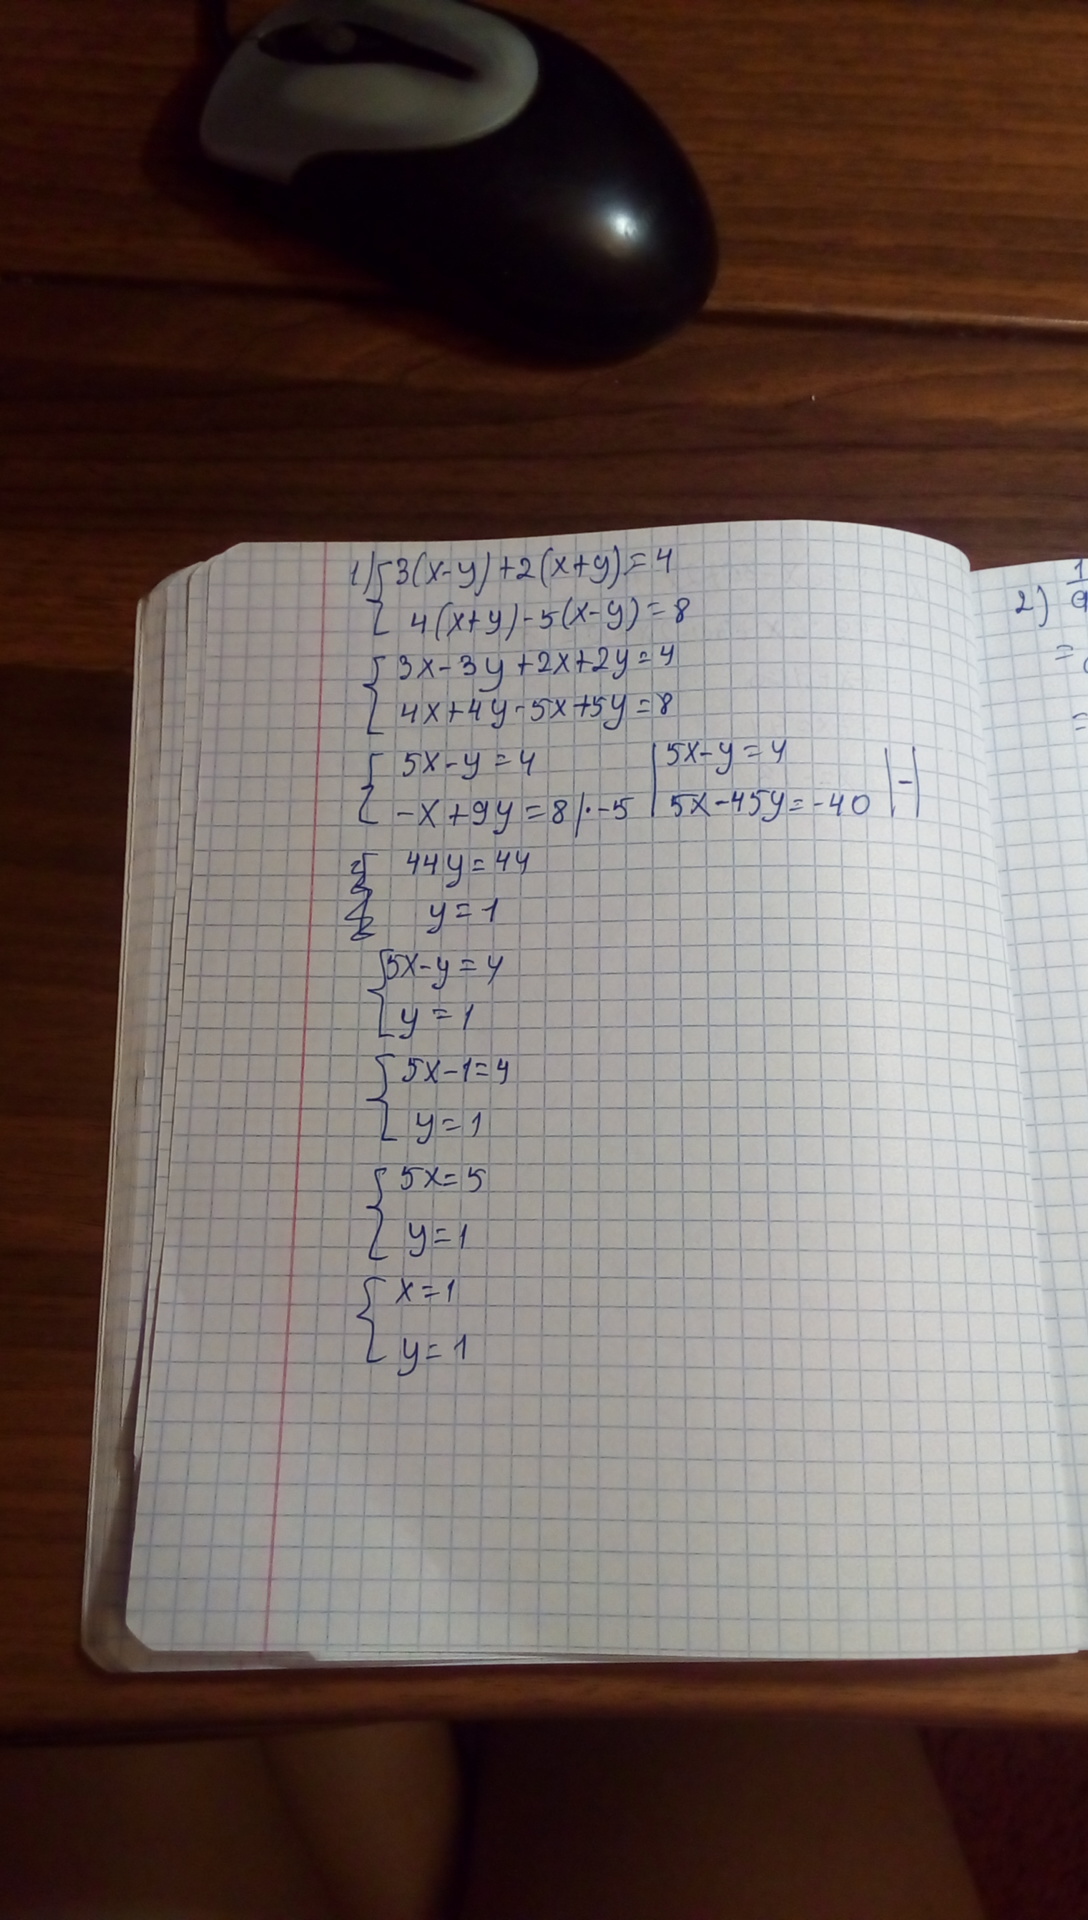 1) { 3(x-y)+2(x+y)=4
4(x+y)-5(x-y)=8
{ 3x-3y+2x+2y=4
4x+4y-5x+5y=8
{ 5x-y=4 | 5x-y=4
-x+9y=8 |·-5 | 5x-45y=-40 |-|
44y=44
y=1
{ 5x-y=4
y=1
{ 5x-1=4
y=1
{ 5x=5
y=1
{ x=1
y=1
2) 1
=
=